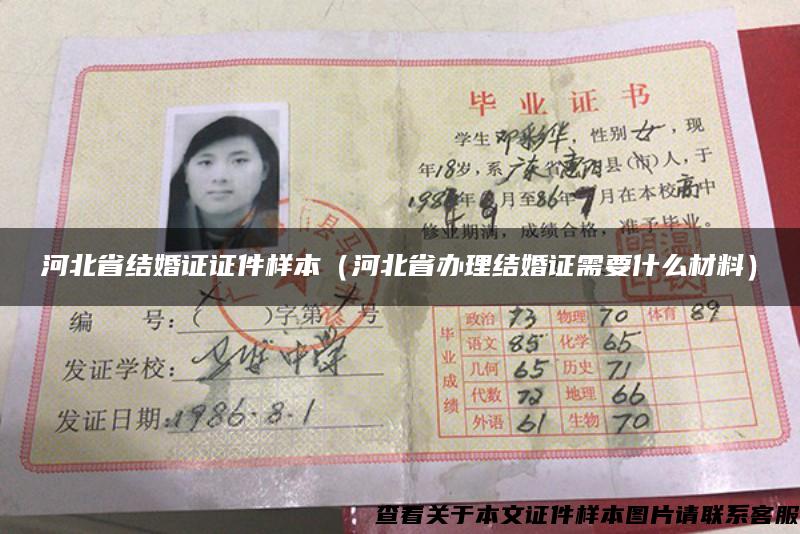 毕业证书
学生邓彩华，性别女，现
年18岁，系广东省惠阳县（市）人，于
1984年9月至86年7月在本校高中
修业期满，成绩合格，准予毕业。
河北省结婚证证件样本（河北省办理结婚证需要什么材料）
编 号：（ ）字第 号
发证学校：马安中学
发证日期：1986.8.1
毕业成绩
政治 73 物理 70 体育 89
语文 85 化学 65
几何 65 历史 71
代数 72 地理 66
外语 61 生物 70
查看关于本文证件样本图片请联系客服